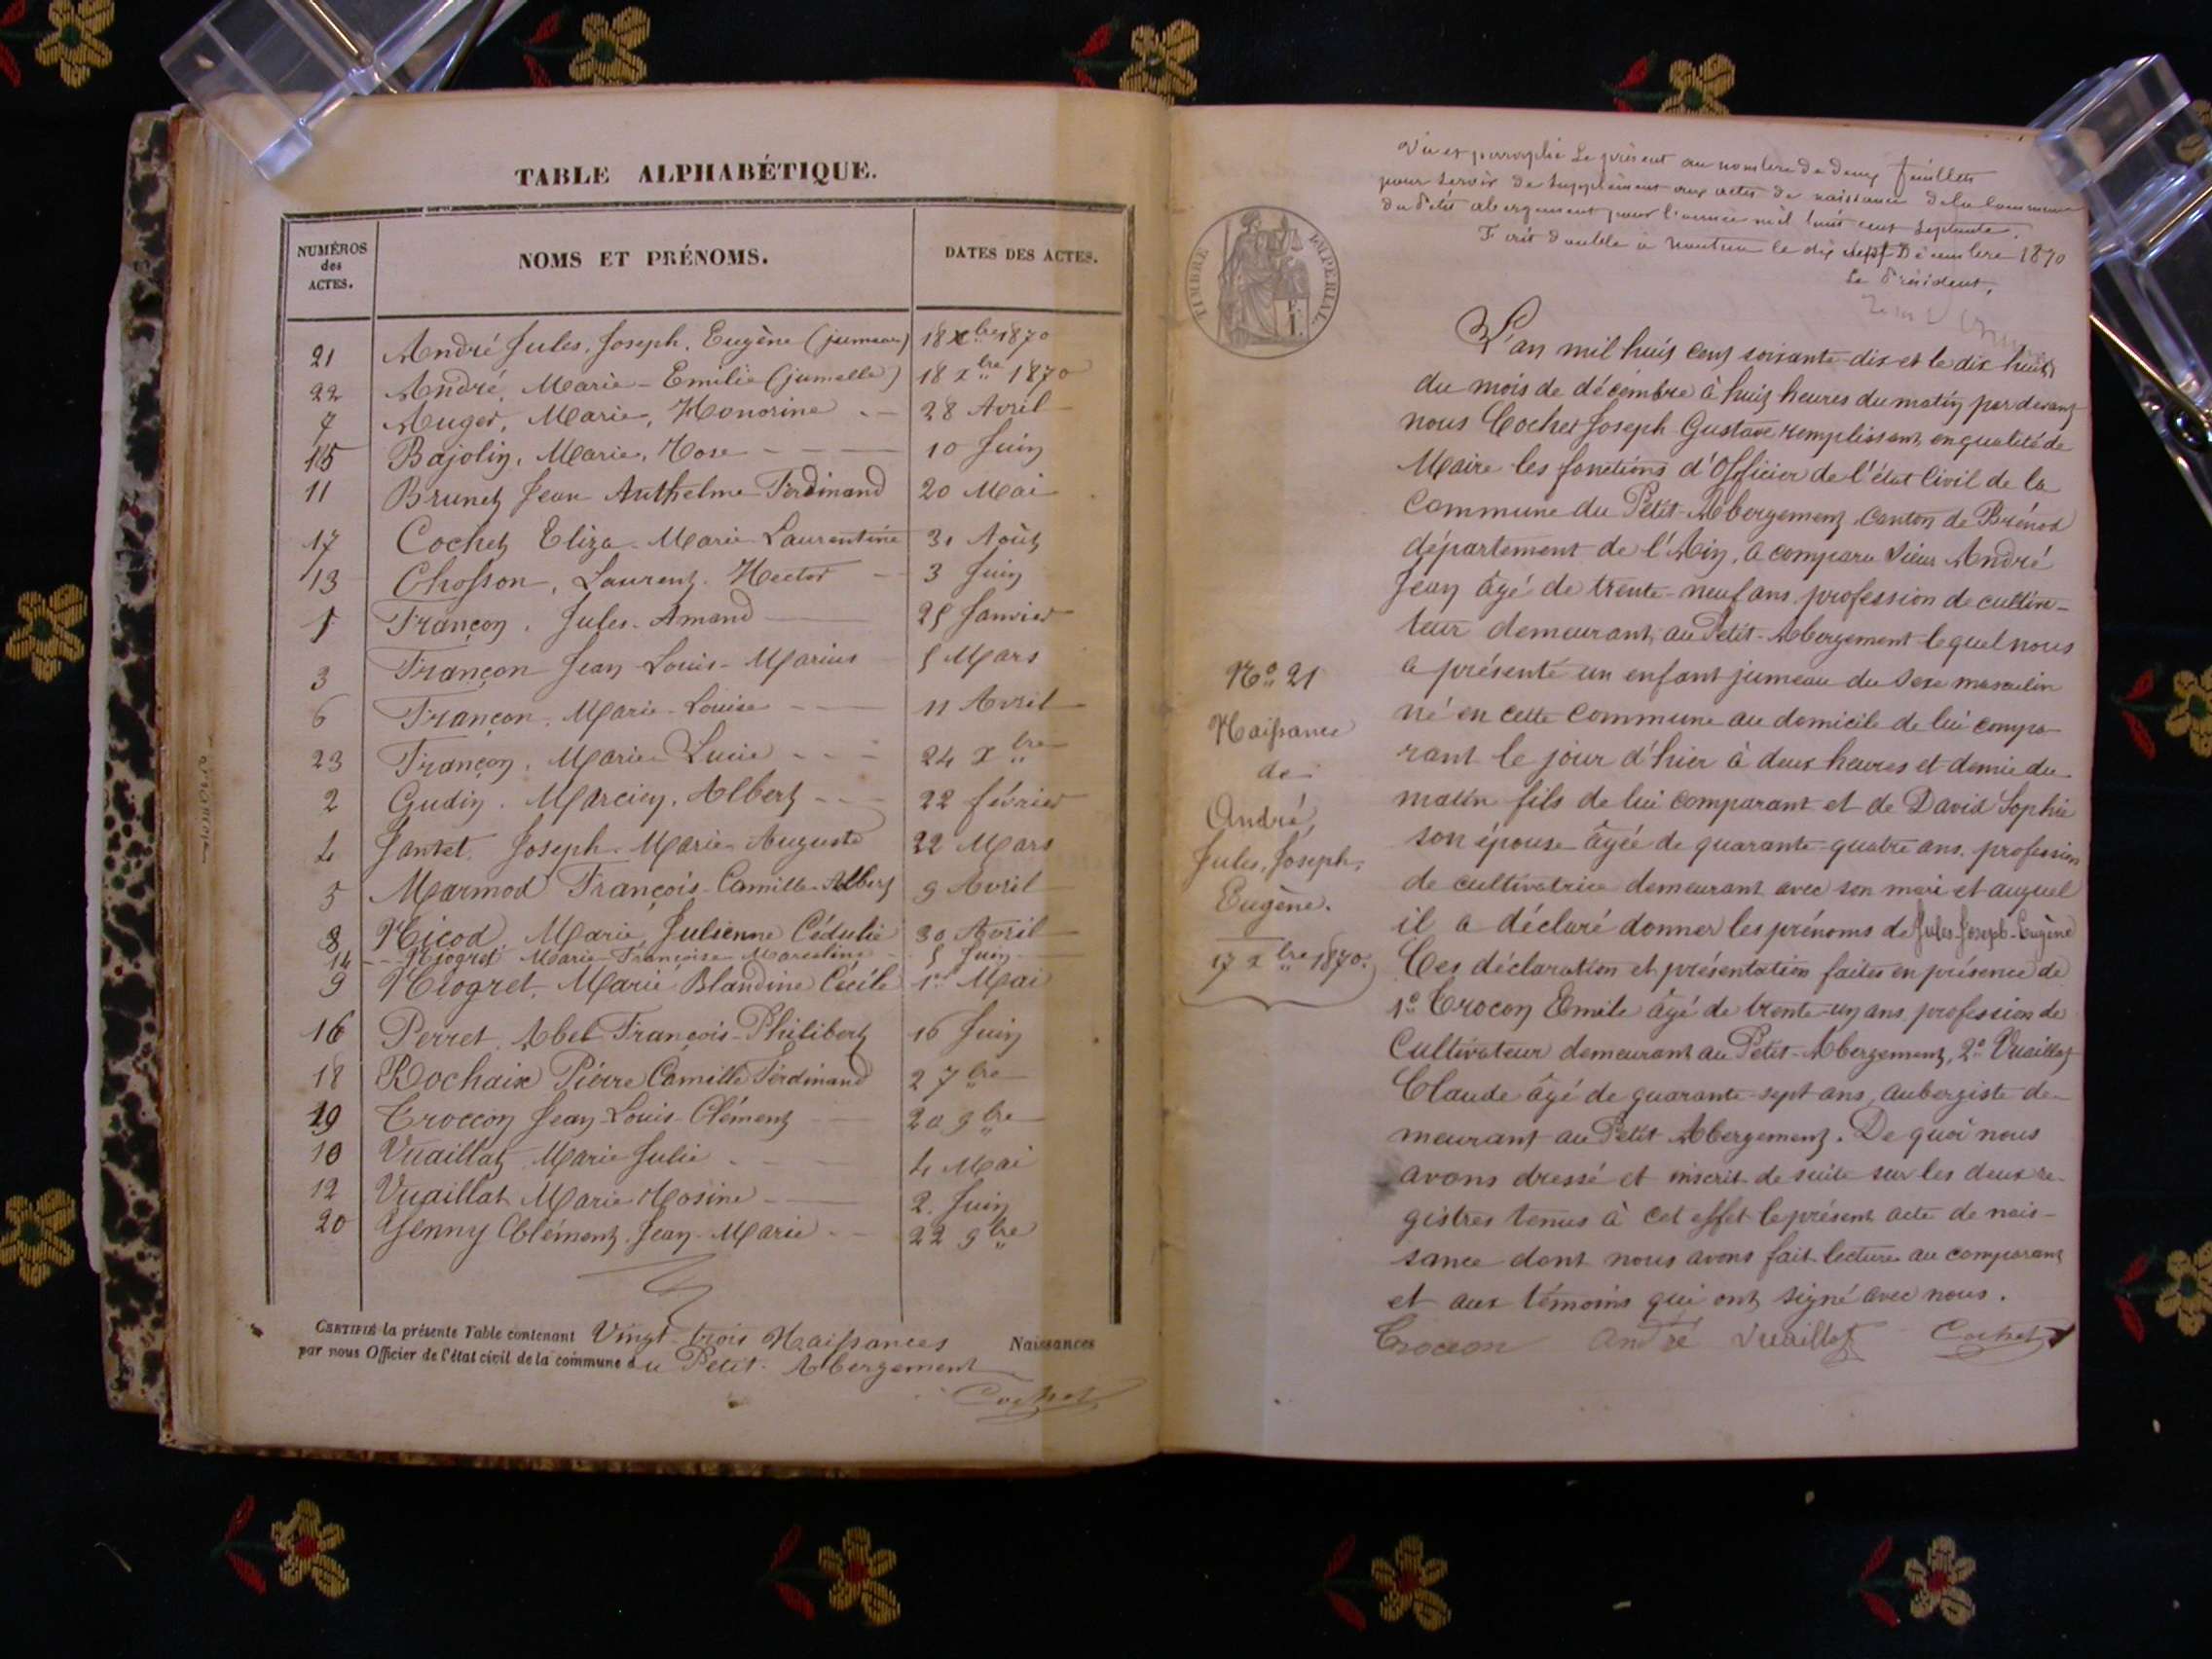 TABLE ALPHABÉTIQUE.
NUMÉROS des ACTES.
NOMS ET PRÉNOMS.
DATES DES ACTES.
21 André Jules, Joseph, Eugène (jumeau) 18 xbre 1870
22 André, Marie-Emilie (jumelle) 18 xbre 1870
7 Auger, Marie, Honorine 28 Avril
15 Bajolin, Marie, Rose 10 Juin
11 Brunet Jean Anthelme Ferdinand 20 Mai
17 Cochet Eliza-Marie-Laurentine 31 Août
13 Chosson, Laurent, Hector 3 Juin
1 Françon, Jules-Amand 25 Janvier
3 Françon Jean-Louis-Marius 5 Mars
6 Françon, Marie-Louise 11 Avril
23 Françon, Marie Lucie 24 xbre
2 Gudin, Marcien, Albert 22 février
4 Jantet, Joseph-Marie-Auguste 22 Mars
5 Marmod François-Camille-Albert 9 Avril
8 Nicod Marie Julienne Cédulie 30 Avril
14 Niogret Marie-Françoise Marceline 5 Juin
9 Niogret, Marie Blandine Cécile 1er Mai
16 Perret, Abel François-Philibert 16 Juin
18 Rochaix Pierre Camille Ferdinand 2 7bre
19 Troccon Jean Louis-Clément 20 9bre
10 Vuaillat Marie Julie 4 Mai
12 Vuaillat Marie Rosine 2 Juin
20 Yenny Clément Jean-Marie 22 9bre
CERTIFIÉ la présente Table contenant Vingt-trois Naissances Naissances
par nous Officier de l'état civil de la commune du Petit-Abergement
Cochet
Vu et paraphé le présent au nombre de deux feuillets
pour servir de supplément aux actes de naissance de la commune
du Petit abergement pour l'année mil huit cent septante.
Fait double à Nantua le dix sept Décembre 1870
Le Président,
TIMBRE IMPÉRIAL
L'an mil huit cent soixante-dix et le dix huit
du mois de décembre à huit heures du matin par devant
nous Cochet Joseph Gustave remplissant en qualité de
Maire les fonctions d'Officier de l'état Civil de la
Commune du Petit-Abergement Canton de Brénod
département de l'Ain, a comparu Sieur André
Jean âgé de trente-neuf ans, profession de cultiva-
teur demeurant au Petit-Abergement lequel nous
a présenté un enfant jumeau du sexe masculin
né en cette commune au domicile de lui compa-
rant le jour d'hier à deux heures et demie du
matin fils de lui comparant et de David Sophie
son épouse âgée de quarante-quatre ans, profession
de cultivatrice demeurant avec son mari et auquel
il a déclaré donner les prénoms de Jules-Joseph-Eugène
Ces déclaration et présentation faites en présence de
1° Trocon Emile âgé de trente-un ans, profession de
Cultivateur demeurant au Petit-Abergement, 2° Vuaillat
Claude âgé de quarante-sept ans, aubergiste de-
meurant au Petit Abergement. De quoi nous
avons dressé et inscrit de suite sur les deux re-
gistres tenus à cet effet le présent acte de nais-
sance dont nous avons fait lecture au comparant
et aux témoins qui ont signé avec nous.
Trocon André Vuaillat Cochet
No 21
Naissance
de
André,
Jules, Joseph,
Eugène.
17 xbre 1870.